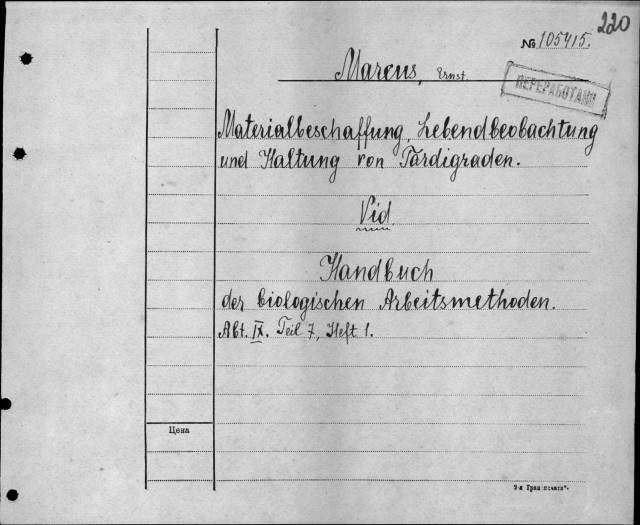 220
№ 105415.
Marcus, Ernst.
ПЕРЕРАБОТАНО
Materialbeschaffung, Lebendbeobachtung
und Haltung von Tardigraden.
Vid.
Handbuch
der biologischen Arbeitsmethoden.
Abt. IX. Teil 7, Heft 1.
Цена